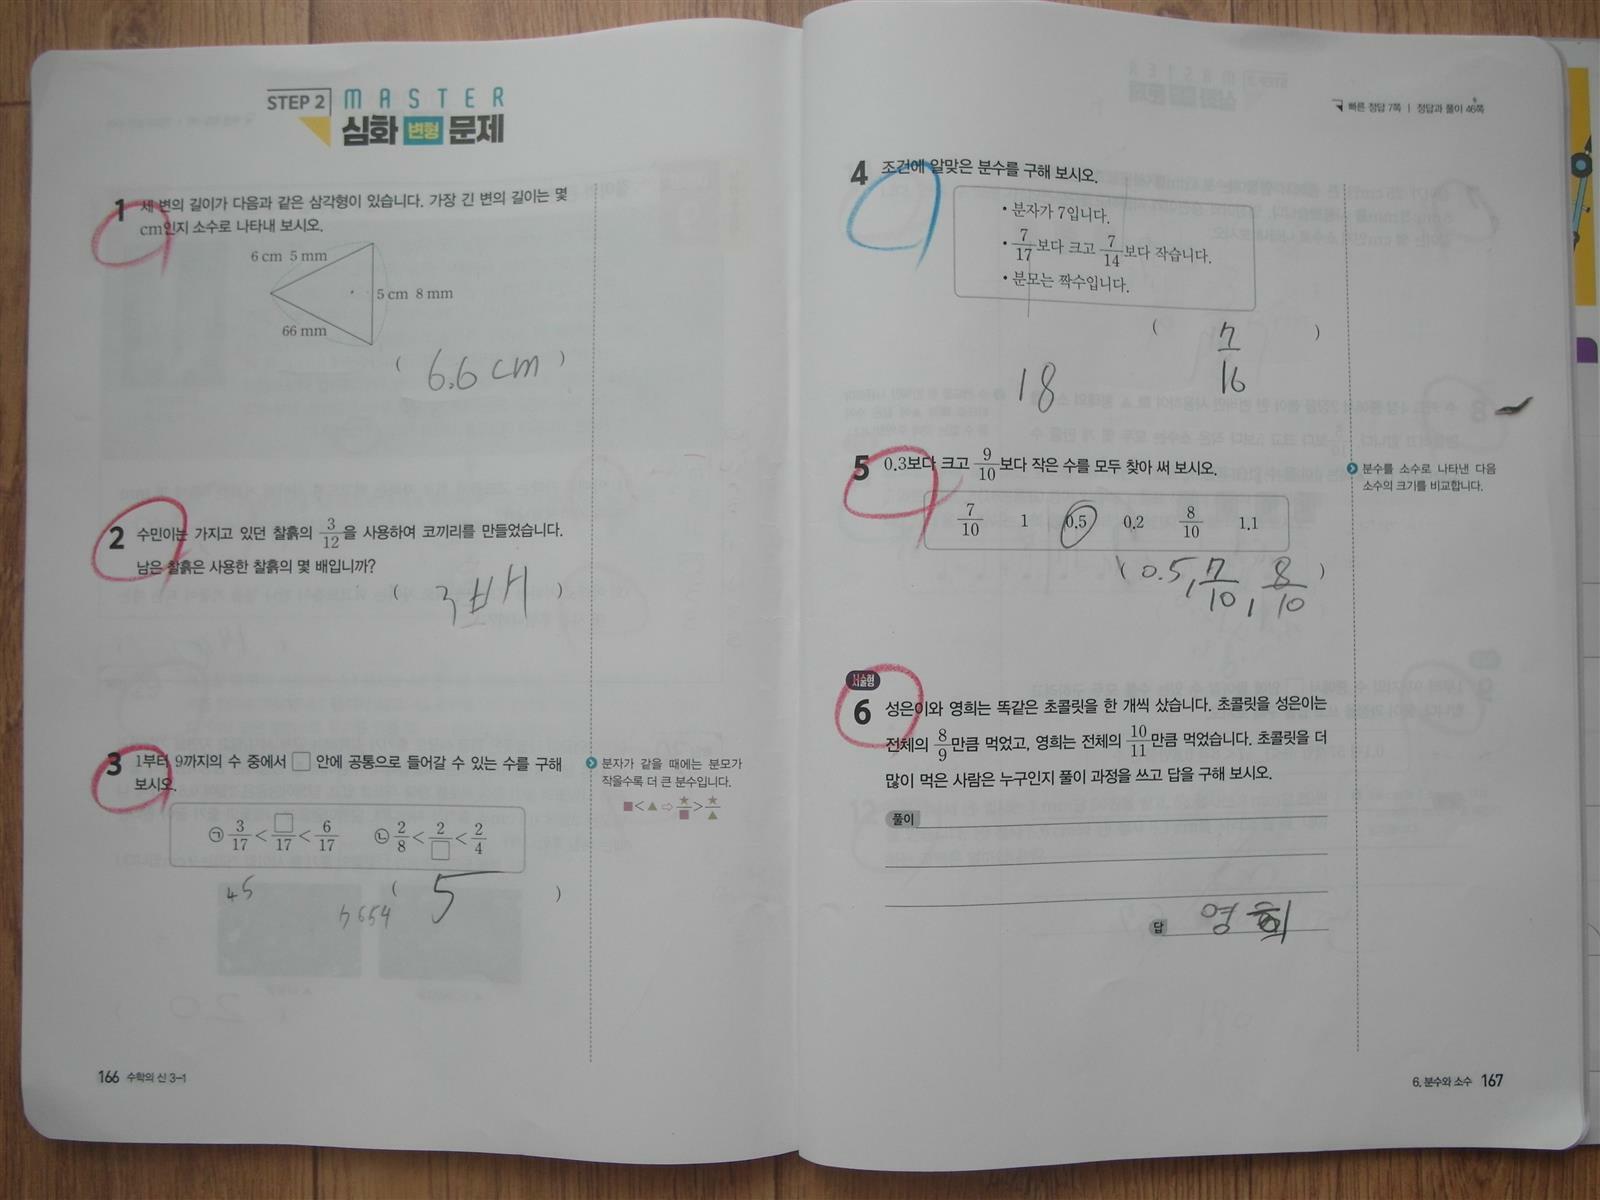 STEP 2 MASTER
심화 변형 문제
1 세 변의 길이가 다음과 같은 삼각형이 있습니다. 가장 긴 변의 길이는 몇
cm인지 소수로 나타내 보시오.
6 cm 5 mm
5 cm 8 mm
66 mm
( 6.6 cm )
2 수민이는 가지고 있던 찰흙의 3/12을 사용하여 코끼리를 만들었습니다.
남은 찰흙은 사용한 찰흙의 몇 배입니까?
( 3배 )
3 1부터 9까지의 수 중에서 □ 안에 공통으로 들어갈 수 있는 수를 구해
보시오.
㉠ 3/17 < □/17 < 6/17 ㉡ 2/8 < 2/□ < 2/4
45
( 5 )
분자가 같을 때에는 분모가
작을수록 더 큰 분수입니다.
■<▲ ⇨ ★/■ > ★/▲
166 수학의 신 3-1
빠른 정답 7쪽 | 정답과 풀이 46쪽
4 조건에 알맞은 분수를 구해 보시오.
• 분자가 7입니다.
• 7/17보다 크고 7/14보다 작습니다.
• 분모는 짝수입니다.
( 7/16 )
18
5 0.3보다 크고 9/10보다 작은 수를 모두 찾아 써 보시오.
7/10 1 0.5 0.2 8/10 1.1
( 0.5, 7/10, 8/10 )
분수를 소수로 나타낸 다음
소수의 크기를 비교합니다.
서술형
6 성은이와 영희는 똑같은 초콜릿을 한 개씩 샀습니다. 초콜릿을 성은이는
전체의 8/9만큼 먹었고, 영희는 전체의 10/11만큼 먹었습니다. 초콜릿을 더
많이 먹은 사람은 누구인지 풀이 과정을 쓰고 답을 구해 보시오.
풀이
답 영희
6. 분수와 소수 167